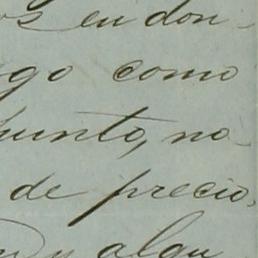 os en don-
go como
punto, no
de precio,
y algu